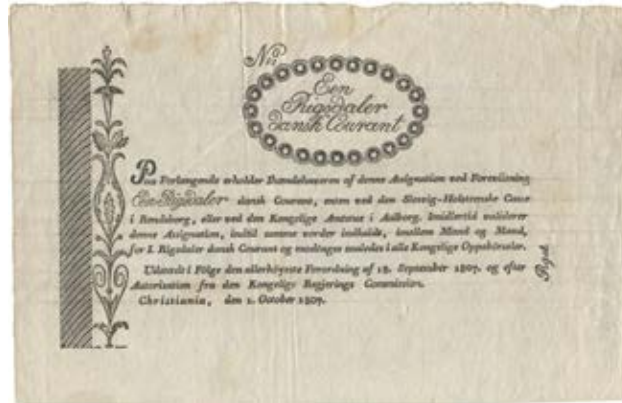 No
Een
Rigsdaler
dansk Courant
Paa Forlangende erholder Ihændehaveren af denne Assignation ved Foreviisning
Een Rigsdaler dansk Courant, enten ved den Slesvig-Holsteenske Casse
i Rendsborg, eller ved den Kongelige Amtstue i Aalborg. Imidlertid validerer
denne Assignation, indtil samme vorder indløst, imellem Mand og Mand,
for 1. Rigsdaler dansk Courant og modtages saaledes i alle Kongelige Oppebörsler.
Udstedt i Fölge den allerhöyeste Forordning af 18. September 1807. og efter
Autorisation fra den Kongelige Regjerings Commission.
Christiania, den 1. October 1807.